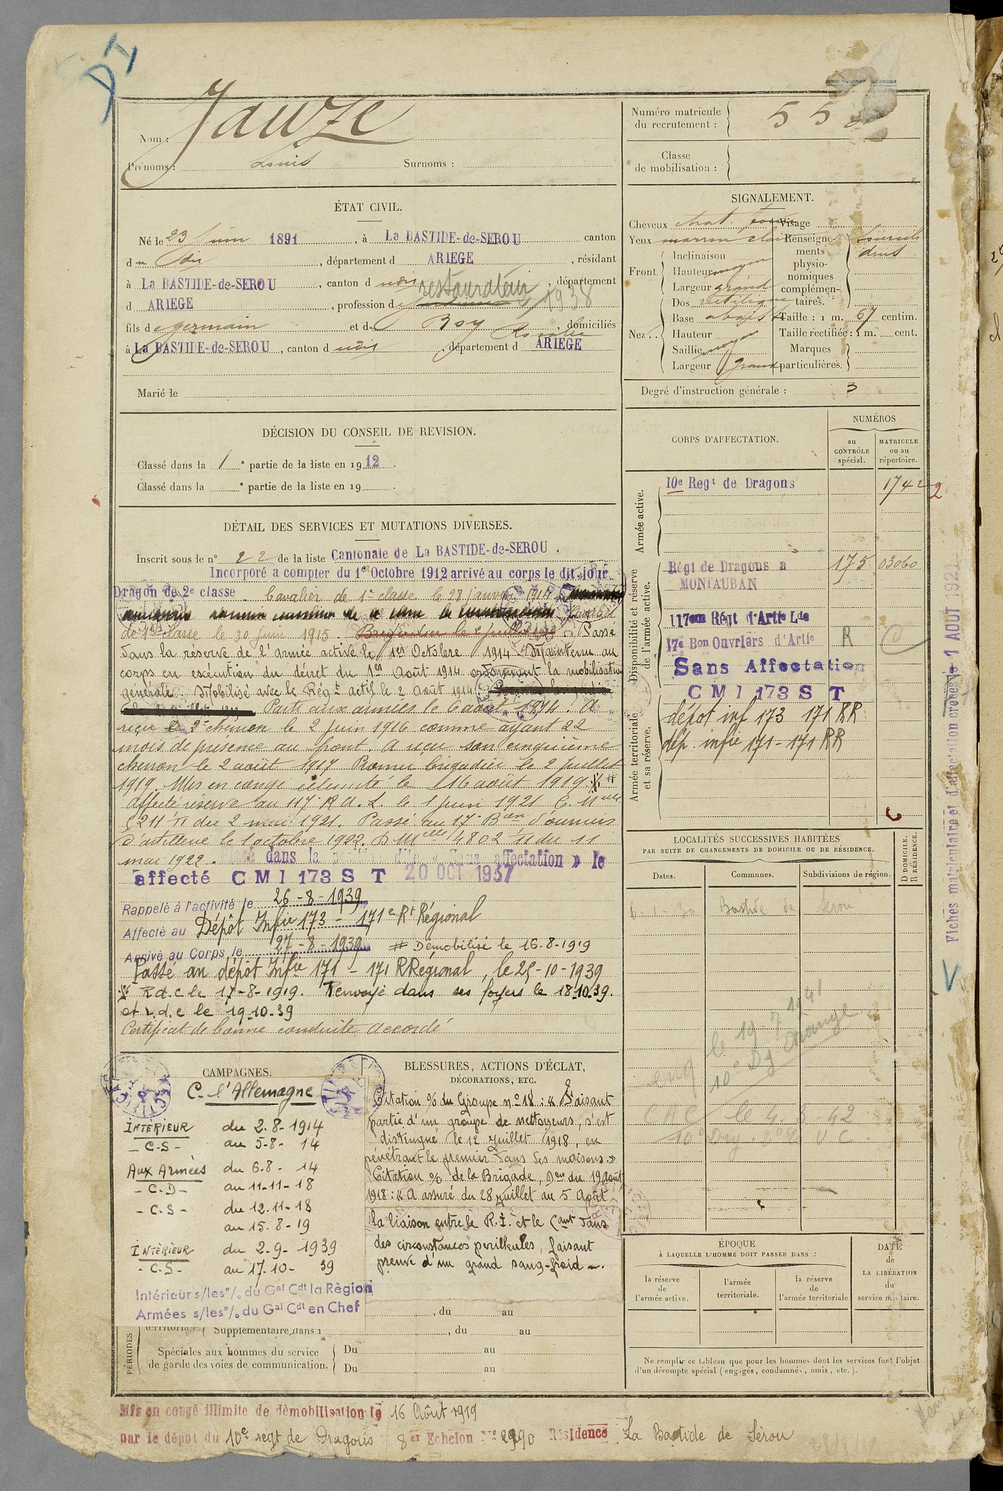 D I
Nom : Jauze
Prénoms : Louis Surnoms :
ÉTAT CIVIL.
Né le 23 Juin 1891, à LA BASTIDE-de-SEROU canton
du dit, département d ARIEGE, résidant
à LA BASTIDE-de-SEROU, canton d udis, département
d ARIEGE, profession d restaurateur 1938
fils de Germain et de Roy, domiciliés
à LA BASTIDE-de-SEROU, canton d udis, département d ARIEGE
Marié le
DÉCISION DU CONSEIL DE REVISION.
Classé dans la 1e partie de la liste en 1912.
Classé dans la e partie de la liste en 19 .
DÉTAIL DES SERVICES ET MUTATIONS DIVERSES.
Inscrit sous le n° 22 de la liste Cantonale de La BASTIDE-de-SEROU.
Incorporé a compter du 1er Octobre 1912 arrivé au corps le dit jour
Dragon de 2e classe. Cavalier de 1e classe le 28 Janvier 1914
de 1re classe le 30 Juin 1915. Brigadier le 2 juillet 1919. Passé
dans la réserve de l'armée active le 1er Octobre 1914. Maintenu au
corps en exécution du décret du 1er Août 1914 ordonnant la mobilisation
générale. Mobilisé avec le Régt actif le 2 Août 1914.
Parti aux armées le 6 août 1914. A
reçu le 2e chevron le 2 juin 1916 comme ayant 22
mois de présence au front. A reçu son cinquième
chevron le 2 août 1917. Promu brigadier le 2 juillet
1919. Mis en congé illimité le 16 août 1919.
Affecté réserve au 117e R.A.L. le 1 juin 1921. C. Mlle
§ 211 du 2 mai 1921. Passé au 17e Bon d'ouvriers
d'artillerie le 1 octobre 1922. D. Mlle 4802 du 11
mai 1922. dans la sans affectation » le
affecté CMI 173 S T 20 OCT 1937
Rappelé à l'activité le 26-8-1939
Affecté au Dépôt Infie 173 - 171e Rt Régional
Arrivé au Corps le 27-8-1939 # Démobilisé le 16-8-1919
Passé au dépôt Infie 171 - 171 R Régional, le 25-10-1939
R.d.c le 17-8-1919. Renvoyé dans ses foyers le 18.10.39.
et r.d.c le 19.10.39
Certificat de bonne conduite accordé
CAMPAGNES.
C. l'Allemagne
INTERIEUR du 2-8-1914
- C.S - au 5-8- 14
AUX ARMÉES du 6.8- 14
- C.D - au 11-11-18
- C.S - du 12.11-18
au 15.8-19
INTERIEUR du 2-9-1939
- C.S - au 17.10- 39
Intérieur s/les °/. du Gal Cdt la Région
Armées s/les °/. du Gal Cdt en Chef
BLESSURES, ACTIONS D'ÉCLAT,
DÉCORATIONS, ETC.
Citation % du Groupe n° 18 : « Faisant
partie d'un groupe de nettoyeurs, s'est
distingué le 12 Juillet 1918, en
pénétrant le premier dans les maisons. »
Citation % de la Brigade, du 19 Août
1918 : « A assuré du 28 juillet au 5 Août
la liaison entre le R.I. et le Cant dans
des circonstances périlleuses, faisant
preuve d'un grand sang-froid -.
, du au
Supplémentaire, dans l , du au
PÉRIODES
Spéciales aux hommes du service Du au
de garde des voies de communication. Du au
Mis en congé illimité de démobilisation le 16 Août 1919
par le dépôt du 10e régt de Dragons 8er Echelon N° 2990 Résidence La Bastide de Sérou
Numéro matricule
du recrutement : 55
Classe
de mobilisation :
SIGNALEMENT.
Cheveux chat. foncé Visage
Yeux marron clair Renseignements physionomiques complémentaires. Sourcils
droits
Front. Inclinaison
Hauteur moyen
Largeur grand
Nez. Dos rectiligne
Base abaissé Taille : 1 m. 67 centim.
Hauteur Taille rectifiée : 1 m. cent.
Saillie moyen Marques
Largeur grand particulières.
Degré d'instruction générale : 3
CORPS D'AFFECTATION.
NUMÉROS
au CONTRÔLE spécial.
MATRICULE ou au répertoire.
Armée active.
10e Regt de Dragons 1742
Disponibilité et réserve de l'armée active.
Régt de Dragons a 175 03060
MONTAUBAN
117eme Régt d'Artie Lde
17e Bon Ouvriers d'Artie R
Sans Affectation
CMI 173 S T
Armée territoriale et sa réserve.
dépôt inf 173 171 RR
dép. infie 171 - 171 RR
LOCALITÉS SUCCESSIVES HABITÉES
PAR SUITE DE CHANGEMENTS DE DOMICILE OU DE RÉSIDENCE.
D DOMICILE.
R RÉSIDENCE.
Dates. Communes. Subdivisions de région.
Bastide de Serou
le 19 7 1941
10e Dg Orange
le 4. 5. 42
ÉPOQUE
À LAQUELLE L'HOMME DOIT PASSER DANS :
DATE
de
LA LIBÉRATION
du
service militaire.
la réserve de l'armée active.
l'armée territoriale.
la réserve de l'armée territoriale
Ne remplir ce tableau que pour les hommes dont les services font l'objet
d'un décompte spécial (engagés, condamnés, omis, etc.).
Fiches matriculaire et d'affectation créées le 1 AOUT 1921